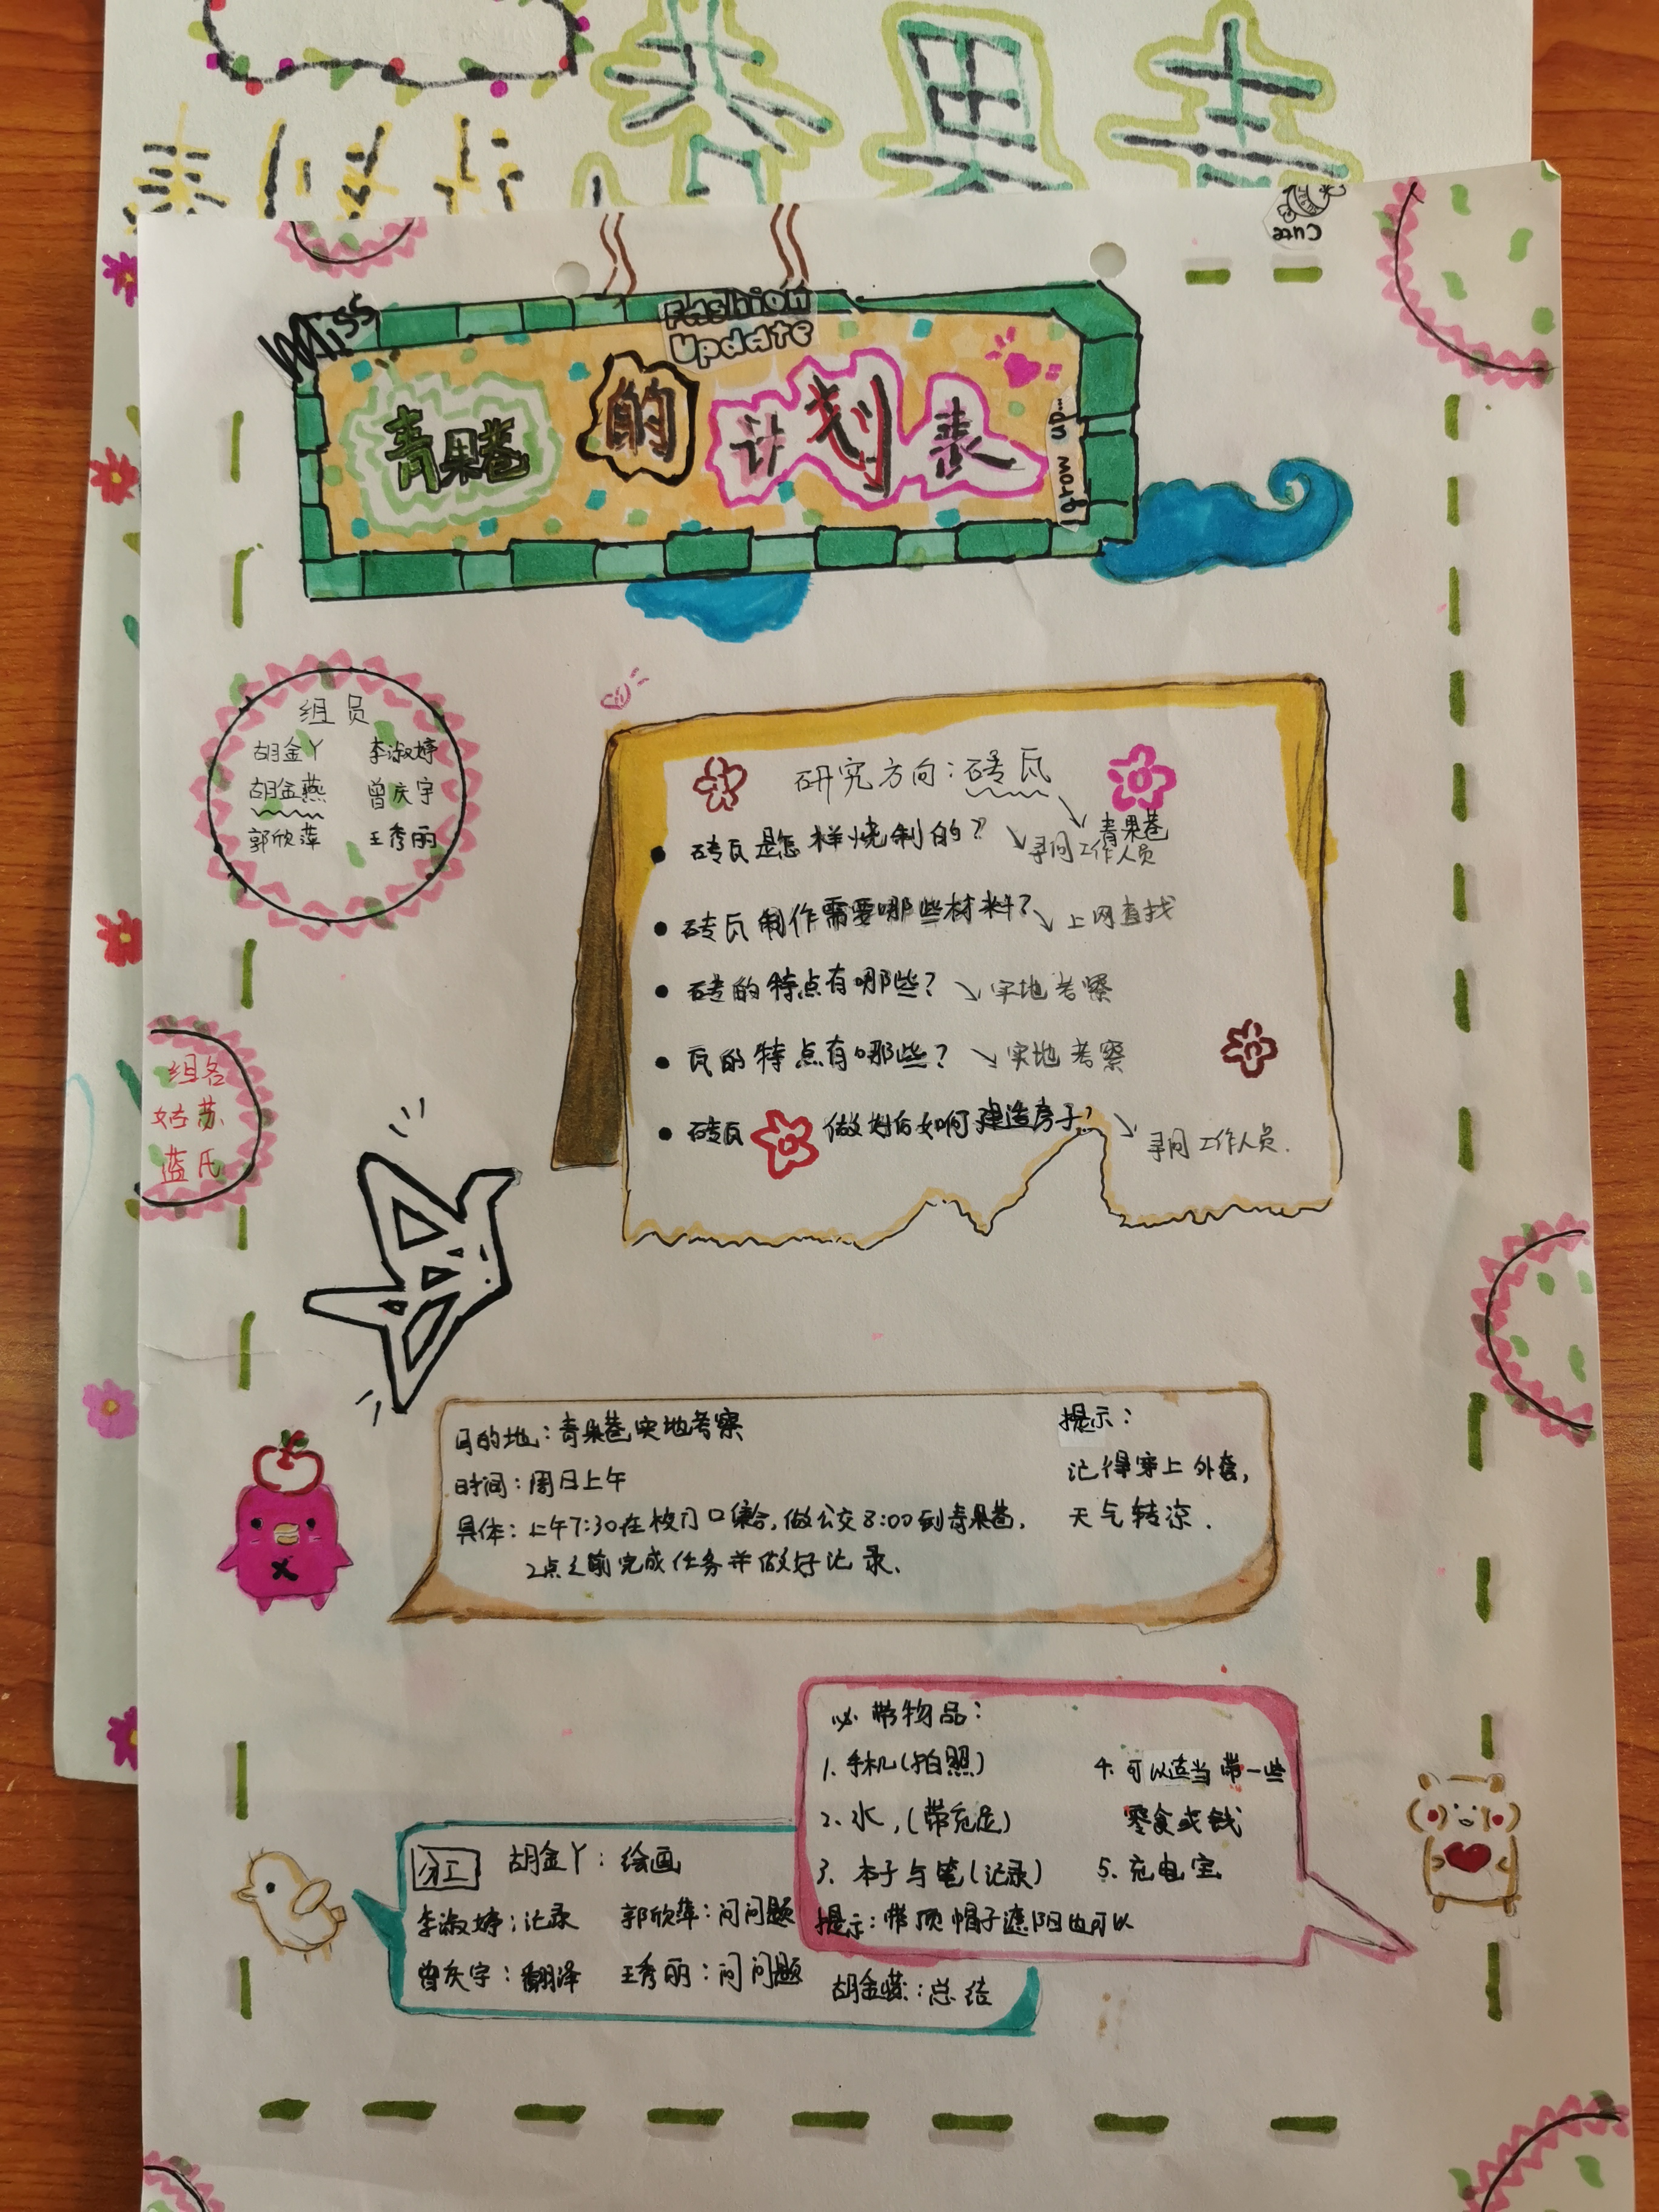 Cute
Miss
Fashion
Update
青果巷的计划表
grow up...
组员
胡金丫 李淑婷
胡金燕 曾庆宇
郭欣萍 王秀丽
研究方向：砖瓦
青果巷
砖瓦是怎样烧制的？ 寻问工作人员
砖瓦制作需要哪些材料？ 上网查找
砖的特点有哪些？ 实地考察
瓦的特点有哪些？ 实地考察
砖瓦做好后如何建造房子？ 寻问工作人员.
组名
姑苏
蓝氏
目的地：青果巷实地考察
时间：周日上午
具体：上午7:30在校门口集合，做公交8:00到青果巷，
2点之前完成任务并做好记录.
提示：
记得穿上外套，
天气转凉.
必带物品：
1. 手机(拍照)
2. 水，(带充足)
3. 本子与笔(记录)
4. 可以适当带一些
零食或钱
5. 充电宝
提示：带顶帽子遮阳也可以
分工 胡金丫：绘画
李淑婷：记录 郭欣萍：问问题
曾庆宇：翻泽 王秀丽：问问题 胡金燕：总结